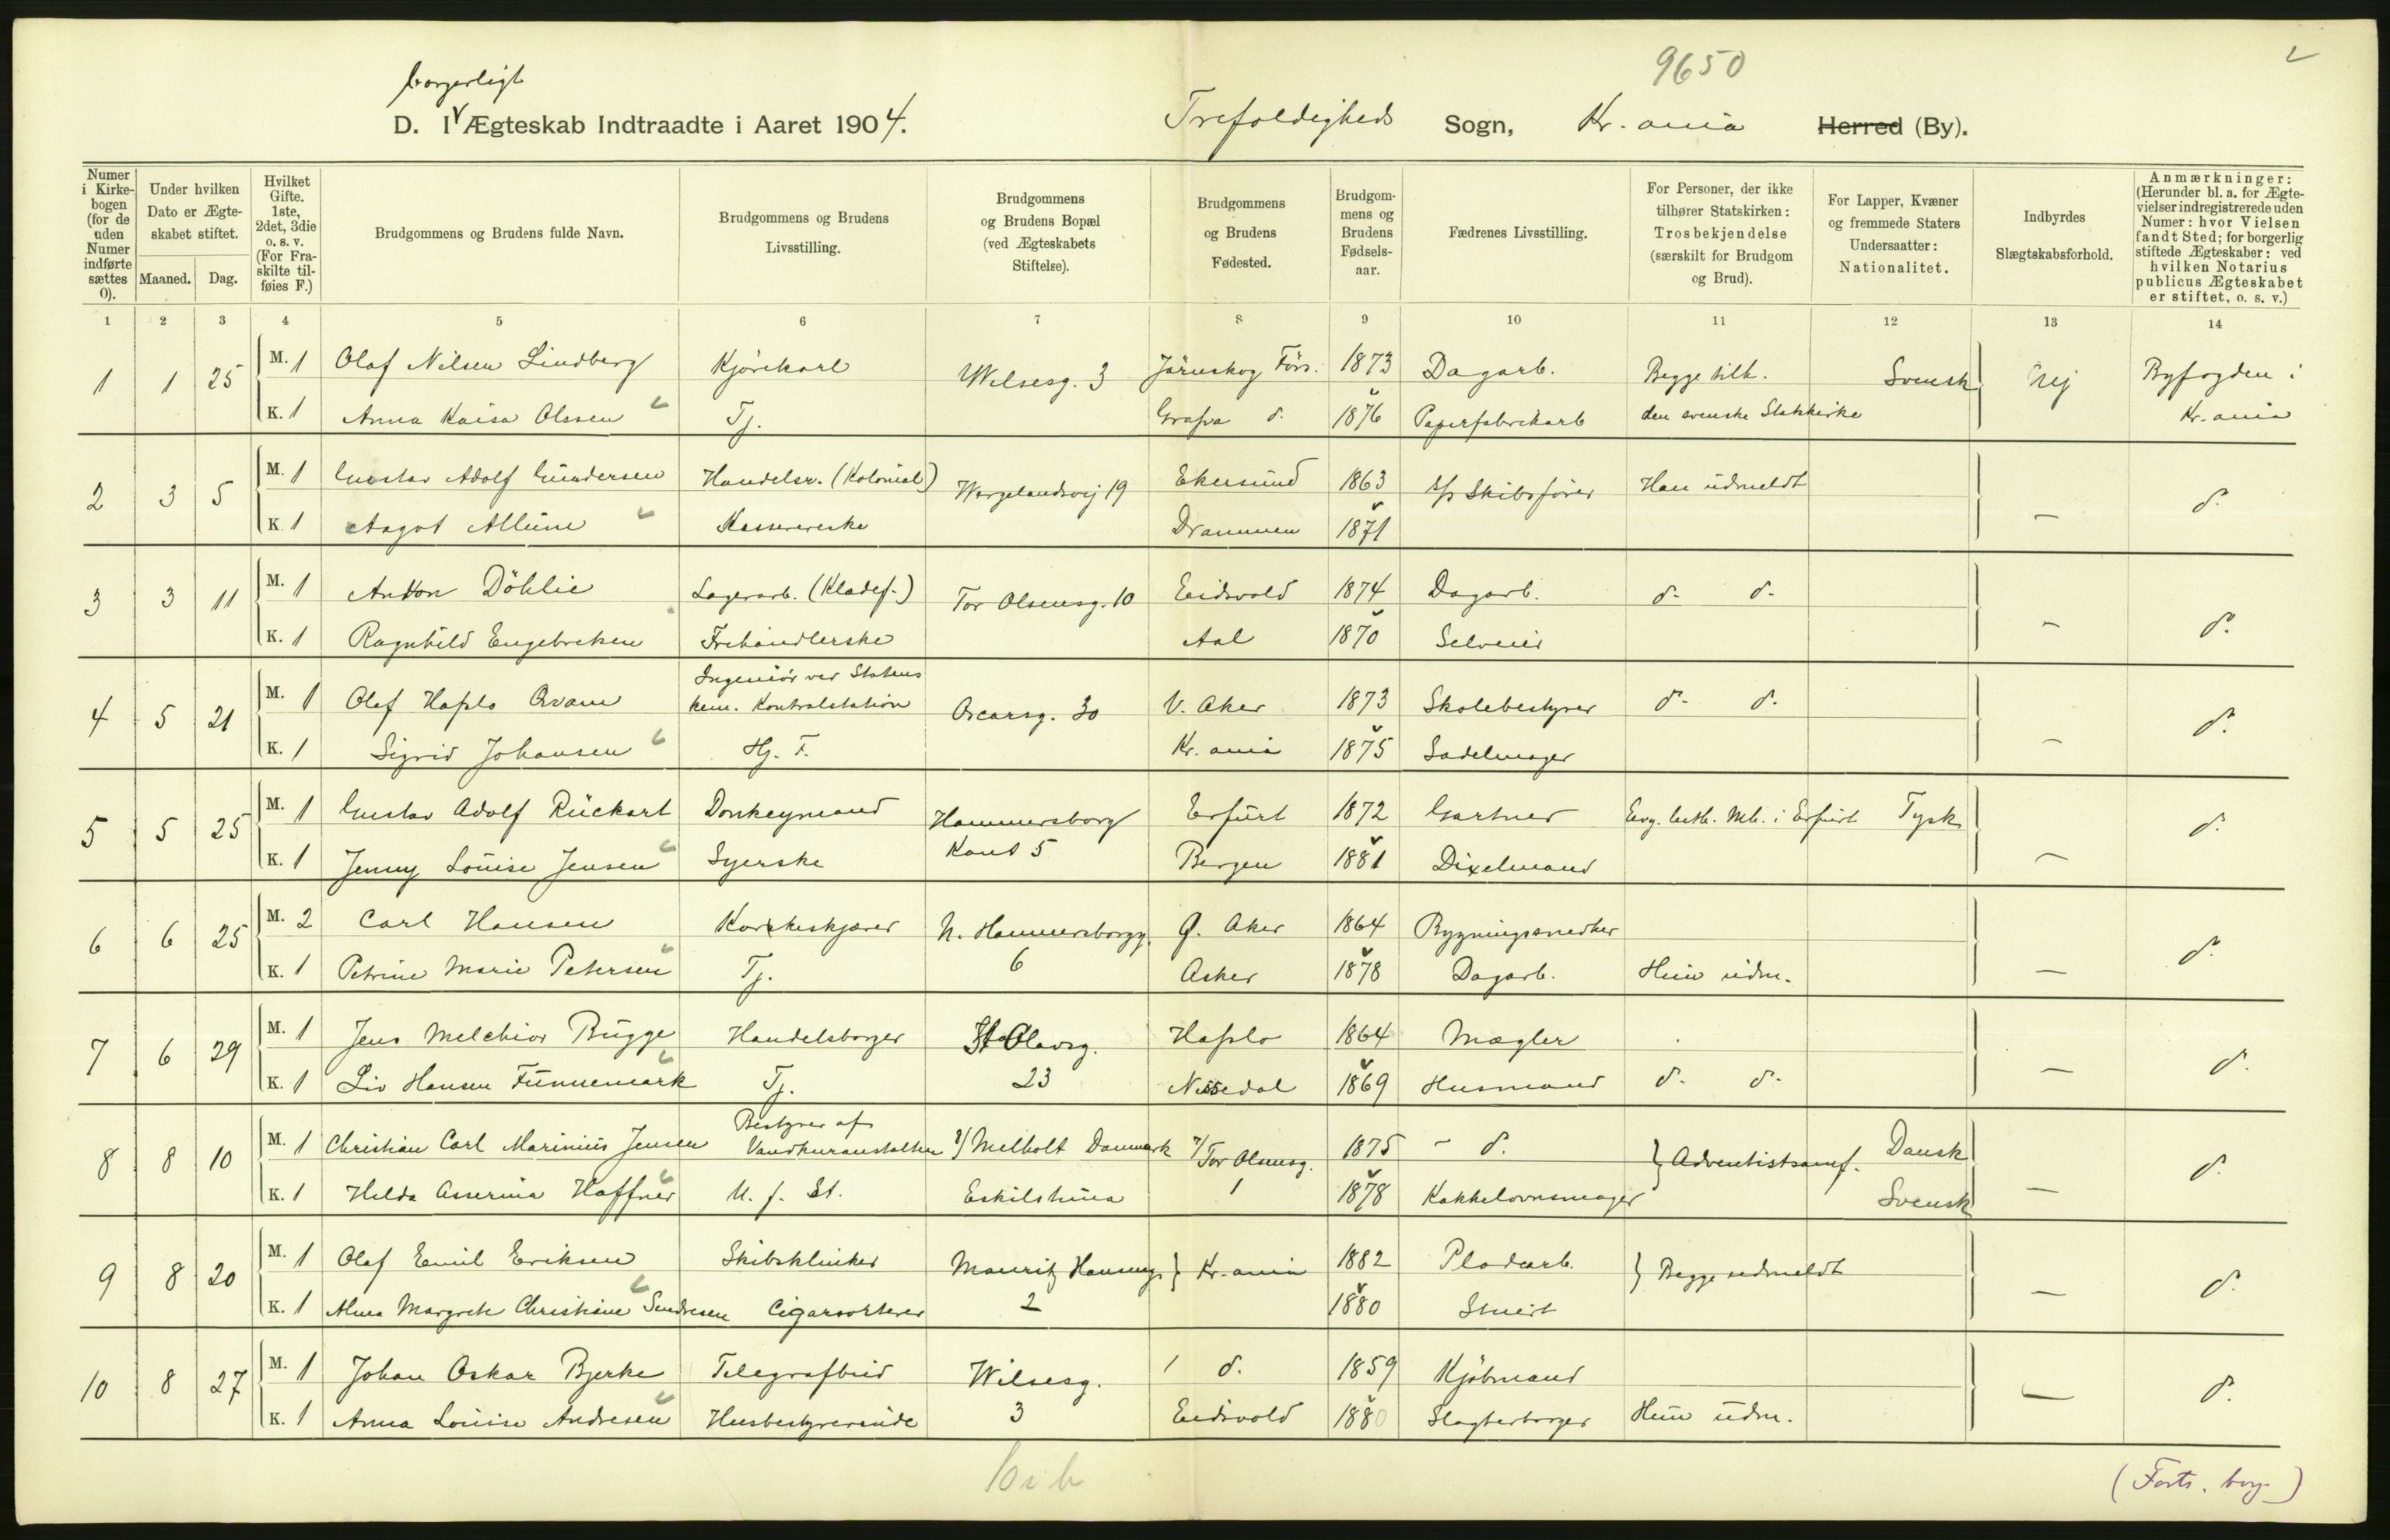 9650
2
borgerligt
D. I Ægteskab Indtraadte i Aaret 1904. Trefoldigheds Sogn, Kr.ania Herred (By).
Numer i Kirke-bogen (for de uden Numer indførte sættes 0).
Under hvilken Dato er Ægte-skabet stiftet.
Maaned. Dag.
Hvilket Gifte. 1ste, 2det, 3die o. s. v. (For Fra-skilte til-føies F.)
Brudgommens og Brudens fulde Navn.
Brudgommens og Brudens Livsstilling.
Brudgommens og Brudens Bopæl (ved Ægteskabets Stiftelse).
Brudgommens og Brudens Fødested.
Brudgom-mens og Brudens Fødsels-aar.
Fædrenes Livsstilling.
For Personer, der ikke tilhører Statskirken: Trosbekjendelse (særskilt for Brudgom og Brud).
For Lapper, Kvæner og fremmede Staters Undersaatter: Nationalitet.
Indbyrdes Slægtskabsforhold.
Anmærkninger: (Herunder bl. a. for Ægte-vielser indregistrerede uden Numer: hvor Vielsen fandt Sted; for borgerlig stiftede Ægteskaber: ved hvilken Notarius publicus Ægteskabet er stiftet, o. s. v.)
1 2 3 4 5 6 7 8 9 10 11 12 13 14
1 1 25 M. 1 Olaf Nilsen Lindberg Kjørekarl Wilsesg. 3 Järnskog Förs. 1873 Dagarb. Begge tilh. Svensk Nej Byfogden i
K. 1 Anna Kaisa Olssen Tj. Grafva d. 1876 Papirfabrikarb den svenske Statskirke Kr.ania
2 3 5 M. 1 Gustav Adolf Gundersen Handelsr. (Kolonial) Wergelandsvej 19 Ekersund 1863 Skibsfører Han udmeldt — d.
K. 1 Aagot Allum Kassererske Drammen 1871
3 3 11 M. 1 Anton Döhlie Lagerarb. (Kladef.) Tor Olsensg. 10 Eidsvold 1874 Dagarb. d. d. — d.
K. 1 Ragnhild Engebretsen Frihandlerske Aal 1870 Selveier
4 5 21 M. 1 Olaf Hafslo Qvam Ingeniør ved Statens
kem. Kontrolstation Oscarsg. 30 V. Aker 1873 Skolebestyrer d. d. — d.
K. 1 Sigrid Johansen Hj. F. Kr.ania 1875 Sadelmager
5 5 25 M. 1 Gustav Adolf Rückart Donkeymand Hammersborg Erfurt 1872 Gartner Evg. luth. Mh. i Erfurt Tysk — d.
K. 1 Jenny Louise Jensen Syerske Kant 5 Bergen 1881 Dixelmand
6 6 25 M. 2 Carl Hansen Korkeskjærer N. Hammersborgg. Ø. Aker 1864 Bygningssnedker — d.
K. 1 Petrine Marie Petersen Tj. 6 Asker 1878 Dagarb. Hun udm.
7 6 29 M. 1 Jens Melchior Bugge Handelsborger St Olavsg. Hafslo 1864 Mægler — d.
K. 1 Liv Hansen Funnemark Tj. 23 Nissedal 1869 Husmand d. d.
8 8 10 M. 1 Christian Carl Marinius Jensen Bestyrer af
Vandkuranstalten Melholt Danmark Tor Olsensg. 1875 - d. Adventistsamf. Dansk — d.
K. 1 Hilda Asserina Haffner U. f. St. Eskilstuna 1 1878 Kakkelovnsmager Svensk
9 8 20 M. 1 Olaf Emil Eriksen Skibsklinker Mauritz Hansensg. Kr.ania 1882 Pladearb. Begge udmeldt — d.
K. 1 Alma Margrete Christiane Sendresen Cigarsorterer 2 1880 Stuert
10 8 27 M. 1 Johan Oskar Bjerke Telegrafbud Wilsesg. d. 1859 Kjøbmand — d.
K. 1 Anna Louise Andresen Husbestyrerinde 3 Eidsvold 1880 Slagterborger Hun udm.
(Forts. borg.)